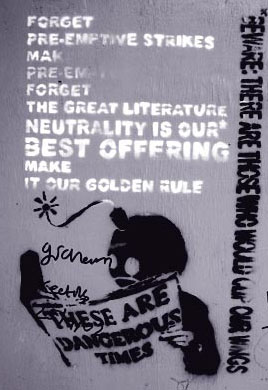 FORGET
PRE-EMPTIVE STRIKES
MAK
PRE-EM
FORGET
THE GREAT LITERATURE
NEUTRALITY IS OUR*
BEST OFFERING
MAKE
IT OUR GOLDEN RULE
THESE ARE
DANGEROUS
TIMES
BEWARE: THERE ARE THOSE WHO WOULD CLIP OUR WINGS